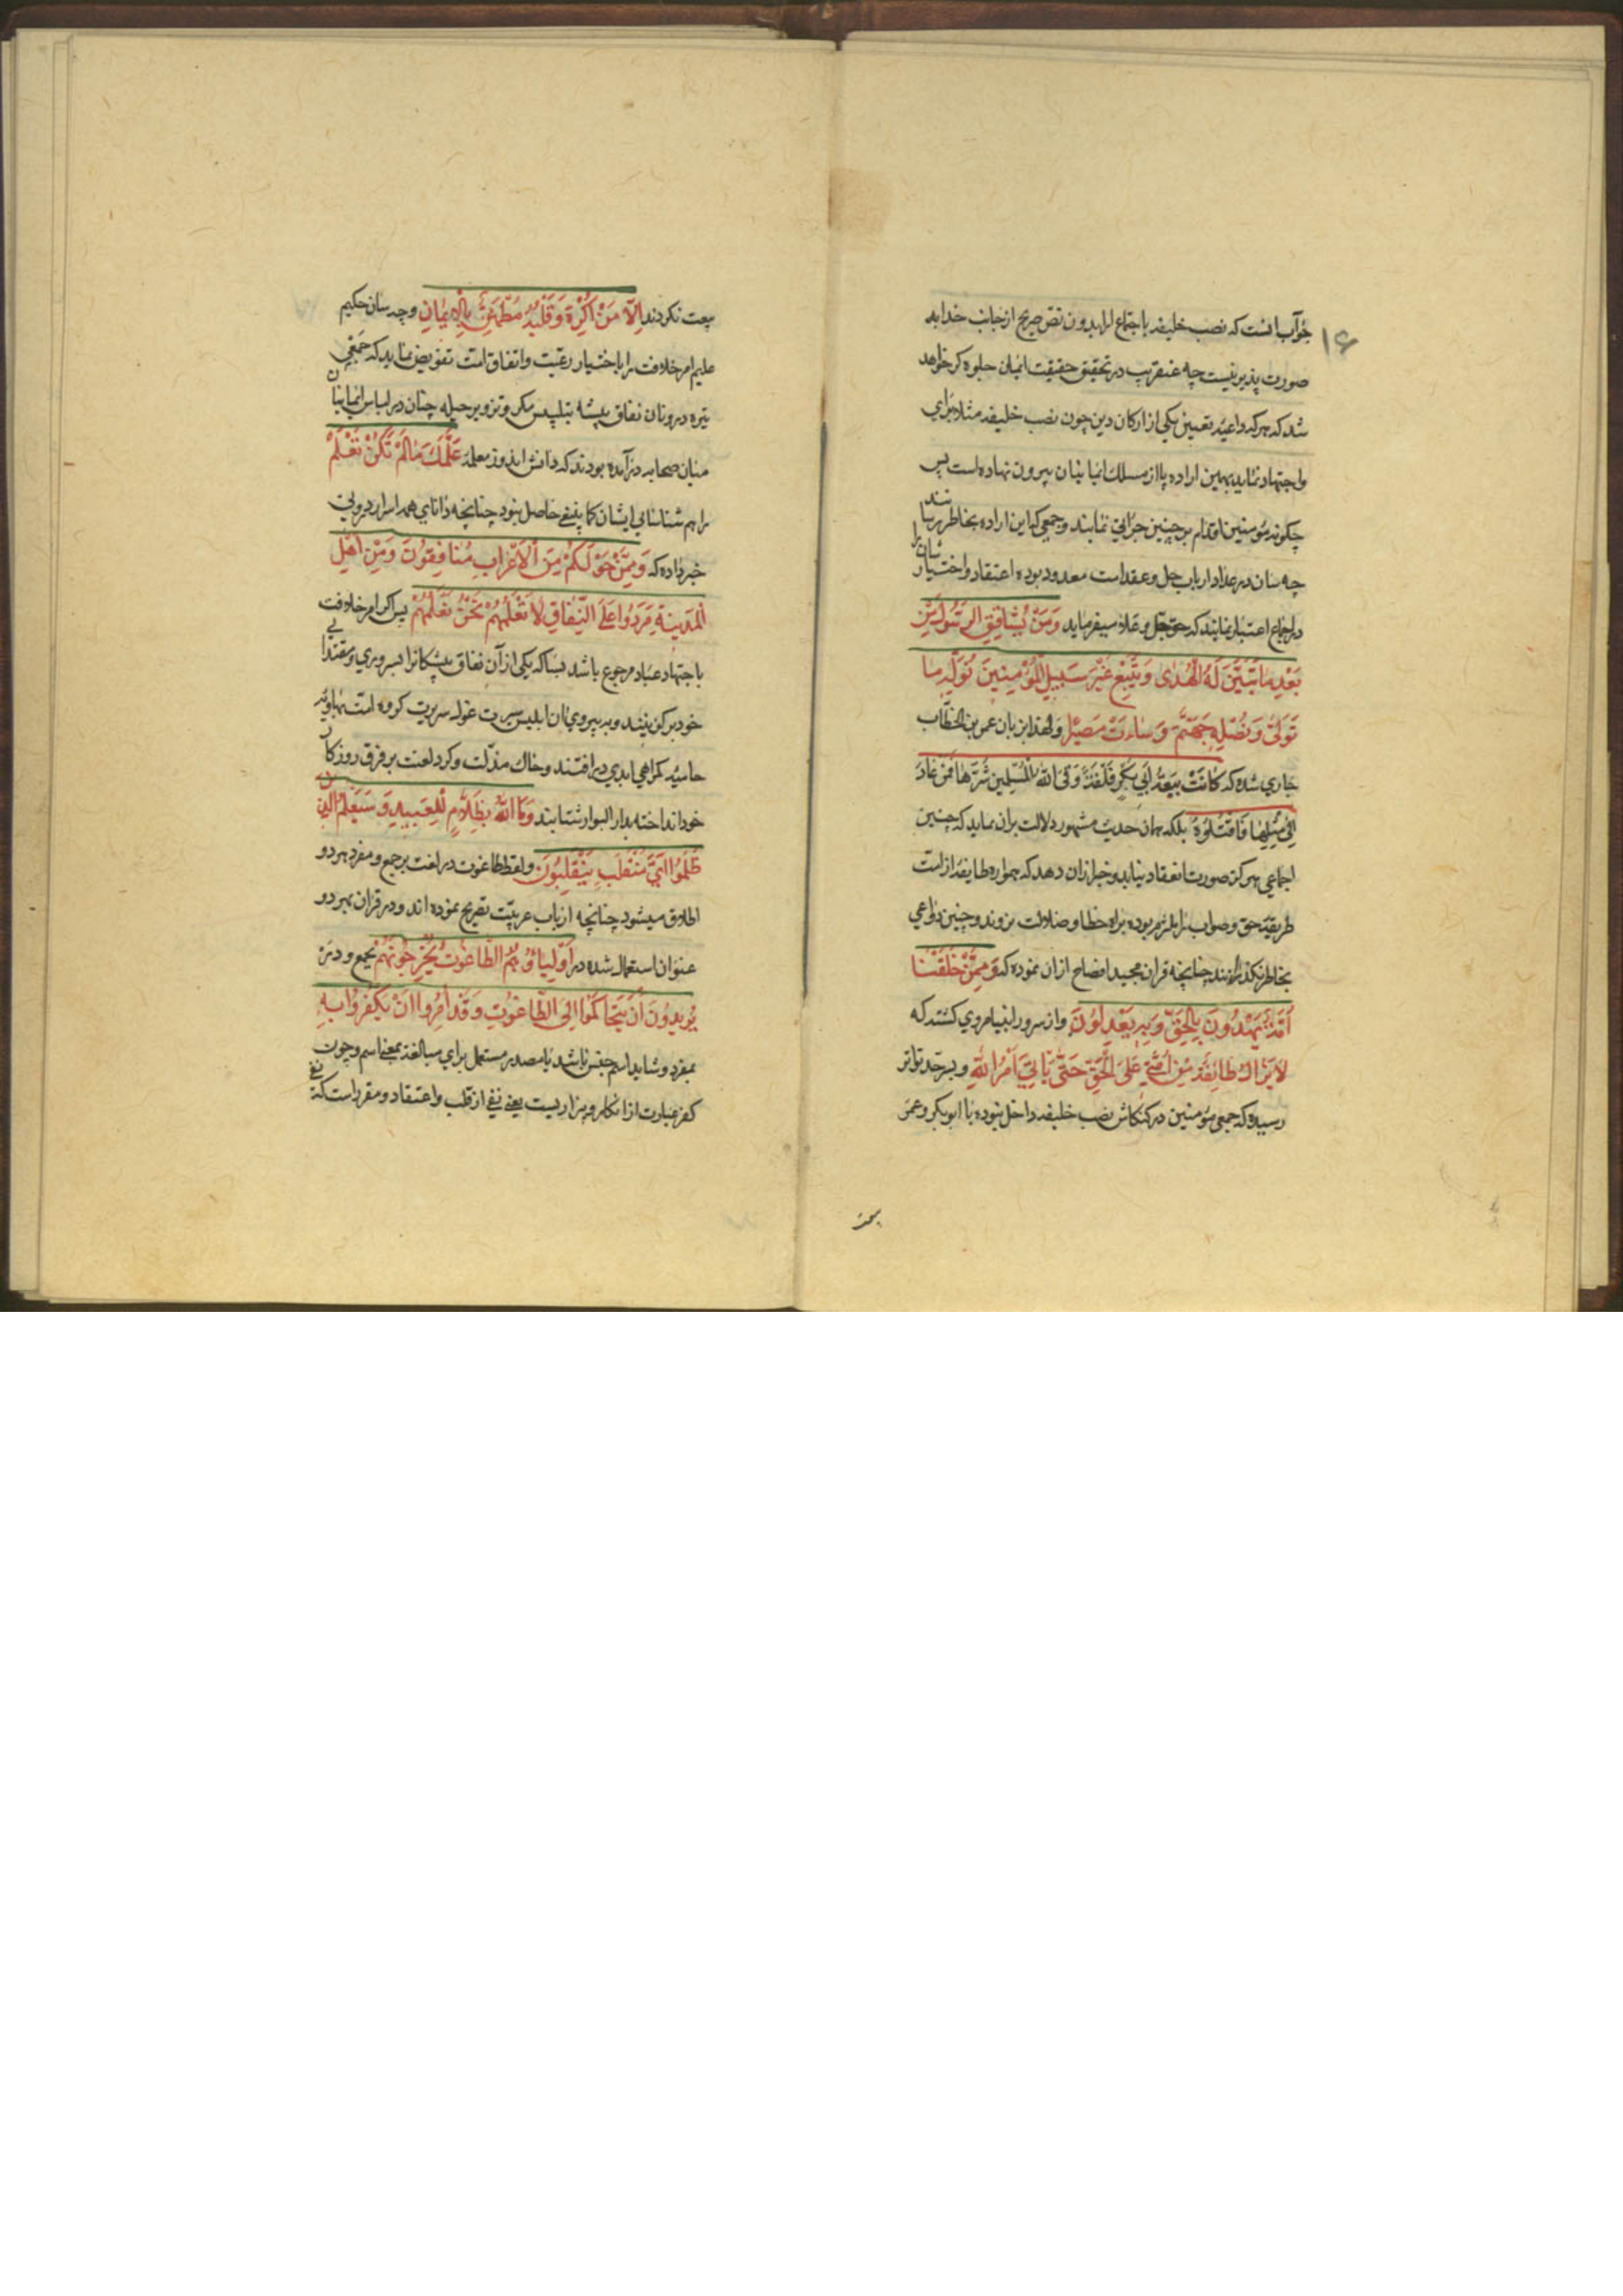 ۱۶
جواب آنست که نصب خلیفه باجماع اراء بدون نص صریح از جانب خدا بد
صورت پذیر نیست چه عنقریب در تحقیق حقیقت ایمان جلوه کر خواهد
شد که هر که داعیه تعیین یکی از ارکان دین چون نصب خلیفه مثلا برای
واجتهاد نماید بهمین اراده پا از مسلک ایمانیان بیرون نهاده است پس
چکونه مؤمنین اقدام بر چنین جراتی نمایند وجمعی که این اراده بخاطر رسانند
چه سان در عداد ارباب حل وعقد امت معدود بوده اعتقاد واختیارشان را
در اجماع اعتبار نمایند که حق جل وعلا میفرماید وَمَنْ يُشَاقِقِ الرَّسُولَ مِنْ
بَعْدِ مَا تَبَيَّنَ لَهُ الْهُدٰى وَيَتَّبِعْ غَيْرَ سَبِيلِ الْمُؤْمِنِينَ نُوَلِّهِ مَا
تَوَلّٰى وَنُصْلِهِ جَهَنَّمَ وَسَاءَتْ مَصِيرًا ولهذا بزبان عمر بن الخطاب
جاری شده که كَانَتْ بَيْعَةُ أَبِي بَكْرٍ فَلْتَةً وَقَى اللّٰهُ الْمُسْلِمِينَ شَرَّهَا فَمَنْ عَادَ
إِلٰى مِثْلِهَا فَاقْتُلُوهُ بلکه همان حدیث مشهور دلالت بران نماید که چنین
اجماعی هرکز صورت انعقاد نیابد وخبر ازان دهد که همواره طایفه از امت
طریقه حق وصواب را ملزم بوده براه خطا وضلالت نروند وچنین دواعی
بخاطر نکذرانند چنانچه قران مجید افصاح ازان نموده که وَمِمَّنْ خَلَقْنَا
أُمَّةٌ يَهْدُونَ بِالْحَقِّ وَبِهِ يَعْدِلُونَ واز سرور انبیا مروی کشته که
لَا يَزَالُ طَائِفَةٌ مِنْ أُمَّتِي عَلَى الْحَقِّ حَتّٰى يَأْتِيَ أَمْرُ اللّٰهِ وبسرحد تواتر
رسیده که جمعی مؤمنین در کنکاش نصب خلیفه داخل نبوده با ابو بکر وعمر
بیعت
بیعت نکردند إِلَّا مَنْ أُكْرِهَ وَقَلْبُهُ مُطْمَئِنٌّ بِالْإِيمَانِ وچه سان حکیم
علیم امر خلافت را باختیار رعیت واتفاق امت تفویض نماید که جمعی
تیره درونان نفاق پیشه بتلبیس مکر وتزویر حیله چنان در لباس ایمانیان
میان صحابه درآمده بودند که دانش اندوز معلمه عَلَّمَكَ مَا لَمْ تَكُنْ تَعْلَمُ
را هم شناسائی ایشان کما ینبغی حاصل نبود چنانچه دانای همه اسرار درونی
خبر داده که وَمِمَّنْ حَوْلَكُمْ مِنَ الْأَعْرَابِ مُنَافِقُونَ وَمِنْ أَهْلِ
الْمَدِينَةِ مَرَدُوا عَلَى النِّفَاقِ لَا تَعْلَمُهُمْ نَحْنُ نَعْلَمُهُمْ پس اکر امر خلافت
باجتهاد عباد مرجوع باشد بسا که یکی از آن نفاق پیشکانرا بسروری ومقتدایی
خود برکزینند وبه پیروی ان ابلیس سیرت غول سریرت کروه امت بهاویه
حامیه کمراهی ابدی در افتند وخاک مذلت وکرد لعنت بر فرق روزکار
خود انداخته بدار البوار شتابند وَمَا اللّٰهُ بِظَلَّامٍ لِلْعَبِيدِ وَسَيَعْلَمُ الَّذِينَ
ظَلَمُوا أَيَّ مُنْقَلَبٍ يَنْقَلِبُونَ ولفظ طاغوت در لغت بر جمع ومفرد هر دو
اطلاق میشود چنانچه ارباب عربیت تصریح نموده اند ودر قران بهر دو
عنوان استعمال شده در أَوْلِيَاؤُهُمُ الطَّاغُوتُ يُخْرِجُونَهُمْ بجمع ودر
يُرِيدُونَ أَنْ يَتَحَاكَمُوا إِلَى الطَّاغُوتِ وَقَدْ أُمِرُوا أَنْ يَكْفُرُوا بِهِ
بمفرد وشاید اسم جنس باشد یا مصدر مستعمل برای مبالغه بمعنی اسم وچون
کفر عبارت از انکار وبیزاریست یعنی نفی از قلب واعتقاد ومقرر است که